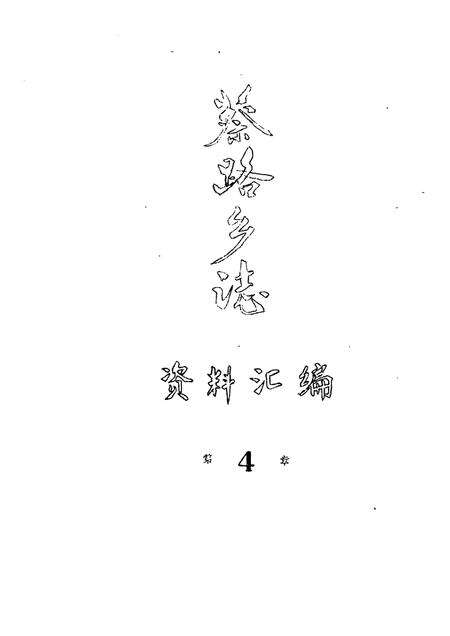 蔡路乡志
资料汇编
第 4 章